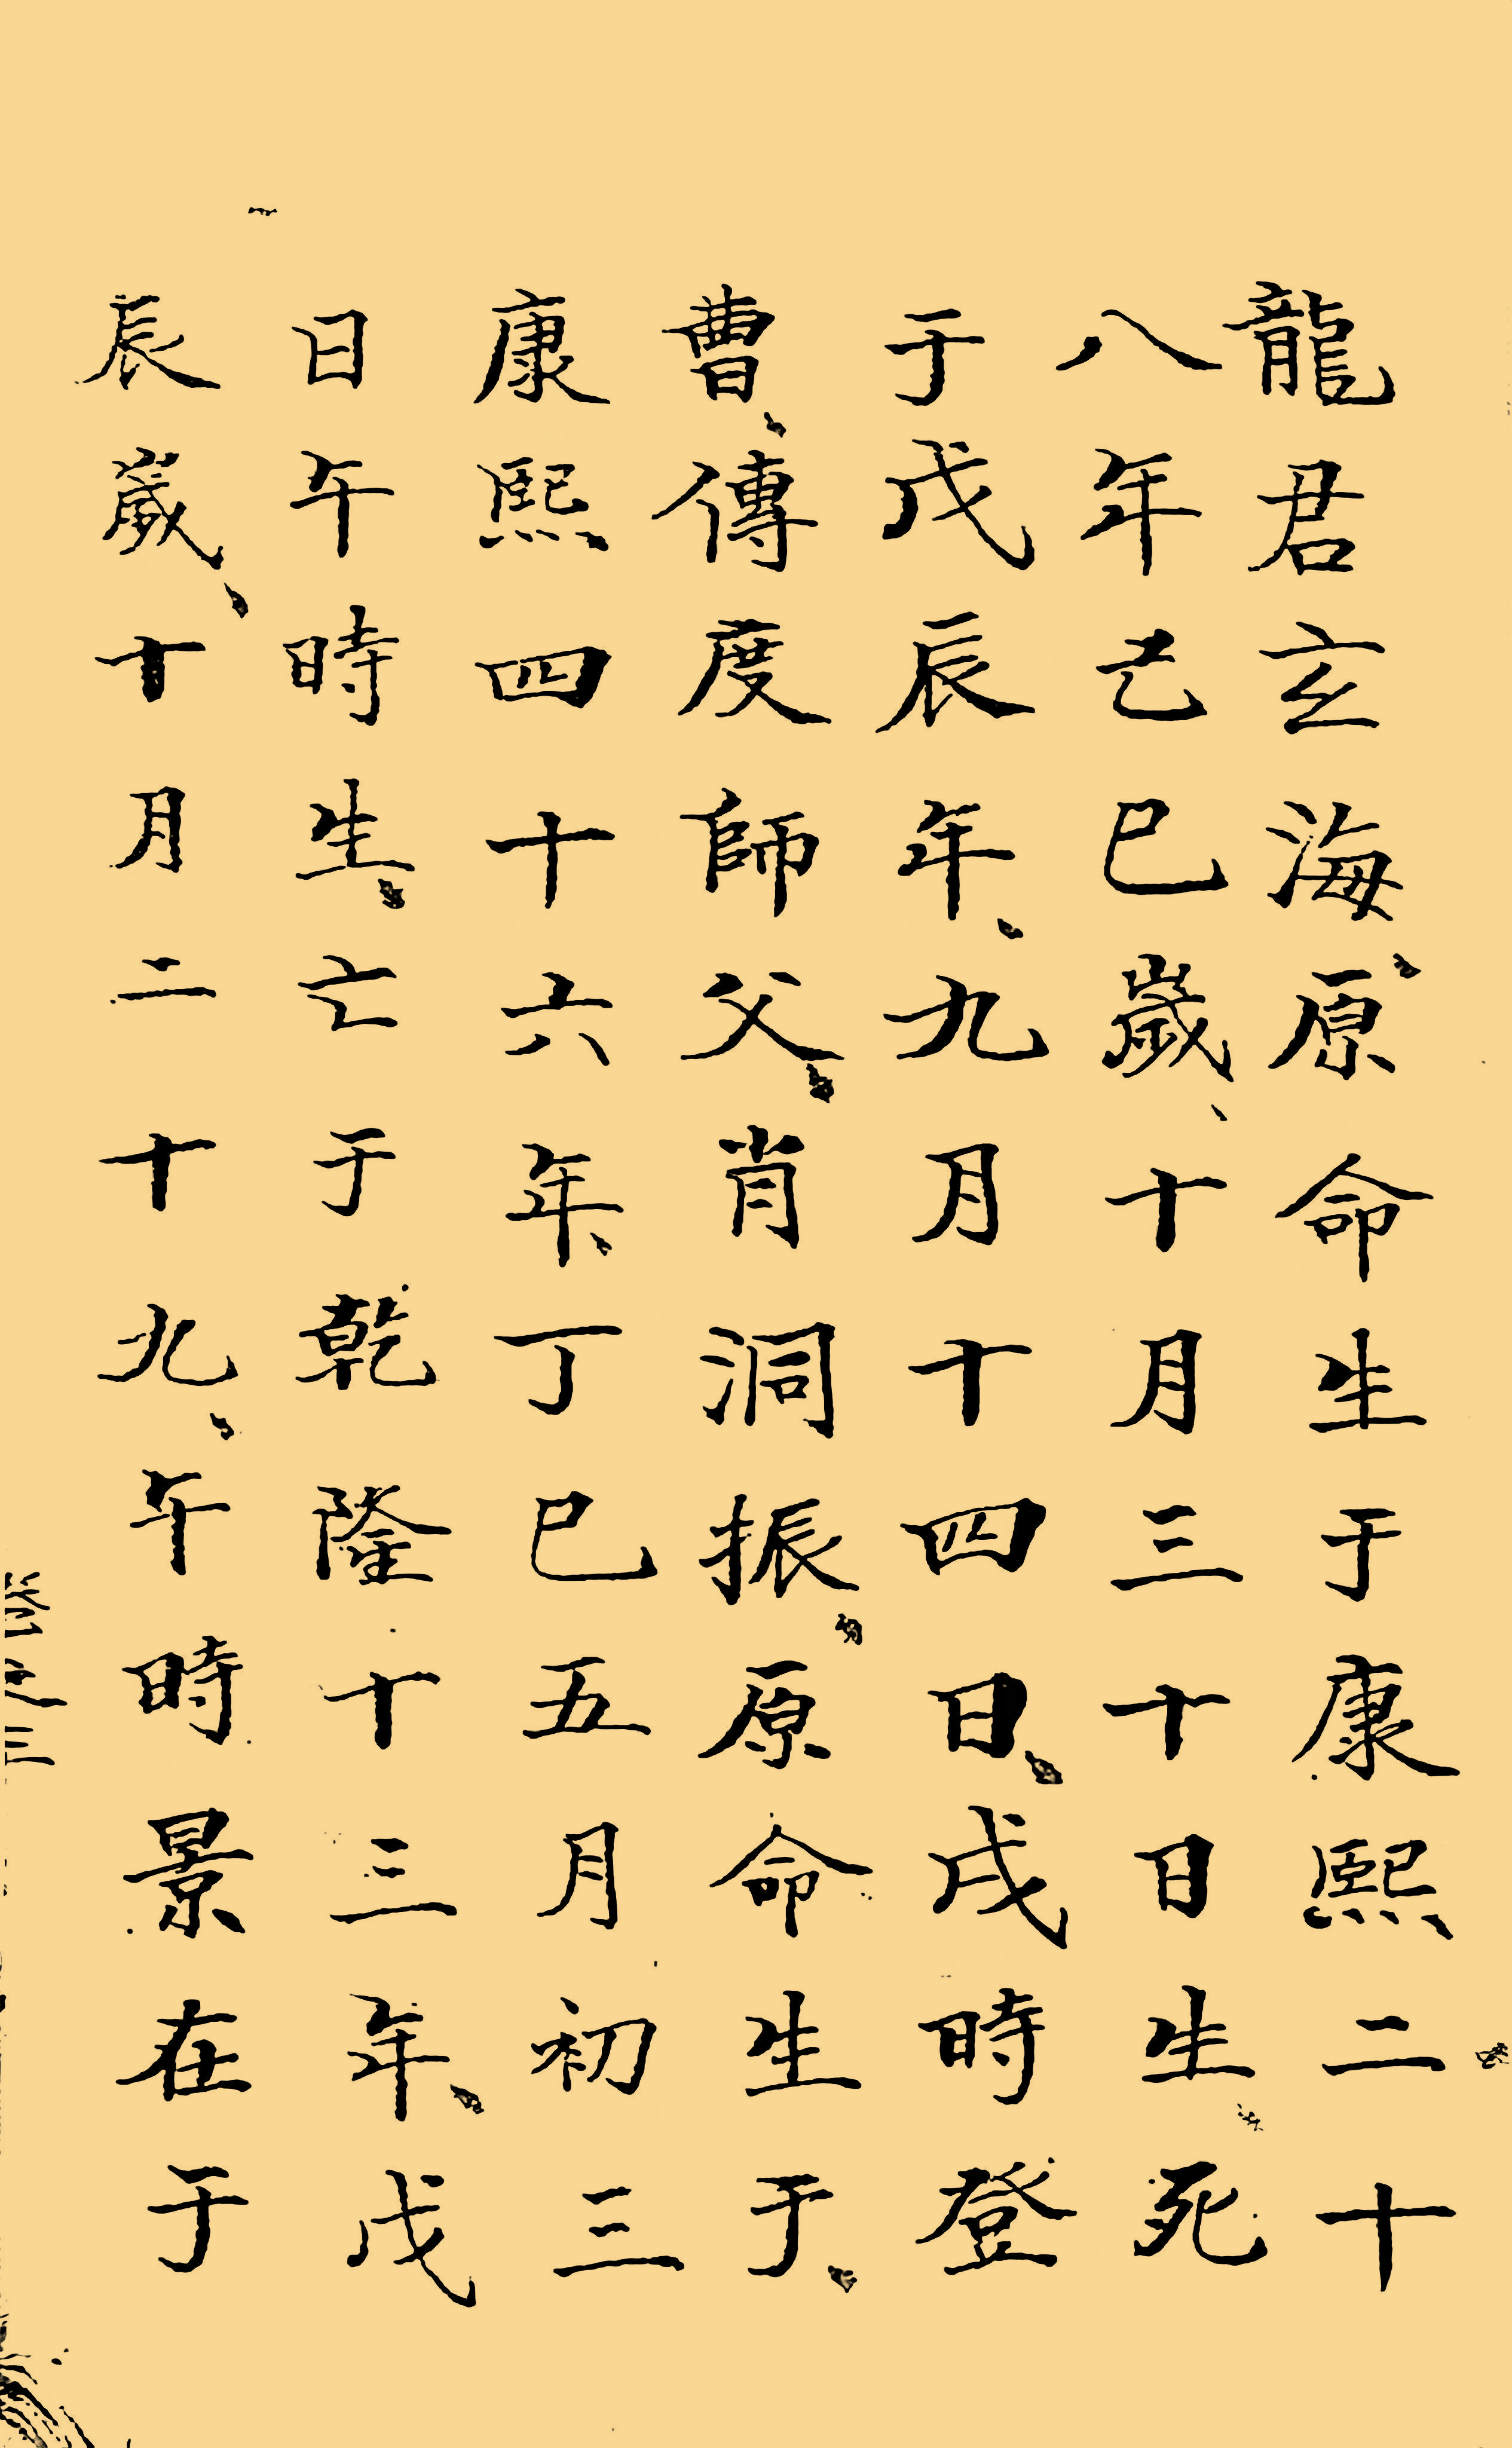 龍君玄海、原命生于康熙二十
八年己巳歲、十月三十日生、死
于戊辰年、九月十四日、戌時登
曹、傳度師父、肖洞振、原命生于、
康熙四十六年、丁巳五月初三
日午時生、亡于乾隆十三年、戊
辰歲、十月二十九、午時景在于